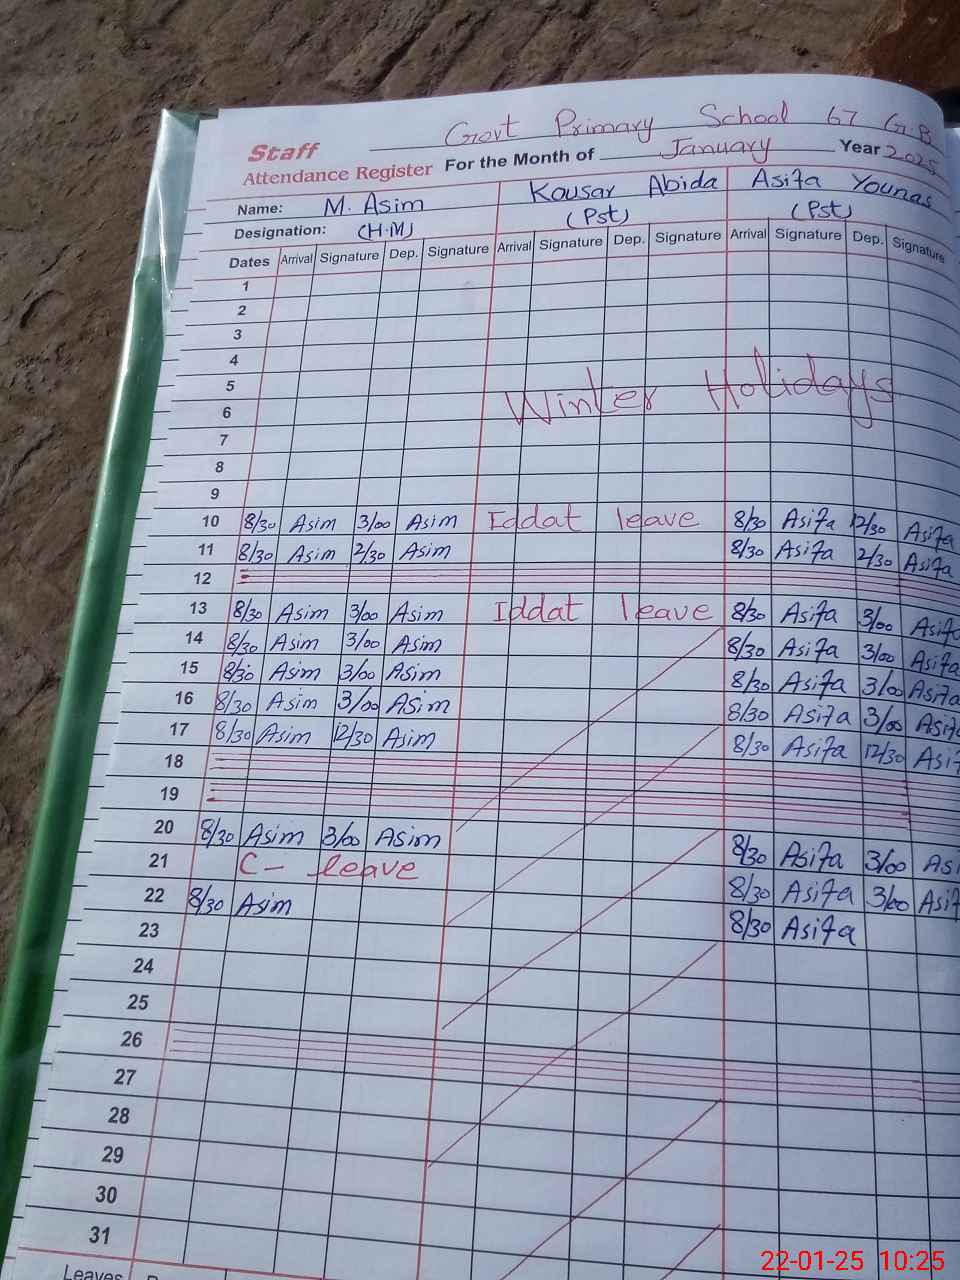 Govt Primary School 67 G.B
Staff
Attendance Register For the Month of January Year 2025
Name: M. Asim Kousar Abida Asifa Younas
Designation: (H.M) (Pst) (Pst)
Dates Arrival Signature Dep. Signature Arrival Signature Dep. Signature Arrival Signature Dep. Signature
1
2
3
4
5
Winter Holidays
6
7
8
9
10 8/30 Asim 3/00 Asim Iddat leave 8/30 Asifa 12/30 Asifa
11 8/30 Asim 2/30 Asim 8/30 Asifa 2/30 Asifa
12
13 8/30 Asim 3/00 Asim Iddat leave 8/30 Asifa 3/00 Asifa
14 8/30 Asim 3/00 Asim 8/30 Asifa 3/00 Asifa
15 8/30 Asim 3/00 Asim 8/30 Asifa 3/00 Asifa
16 8/30 Asim 3/00 Asim 8/30 Asifa 3/00 Asifa
17 8/30 Asim 12/30 Asim 8/30 Asifa 12/30 Asi
18
19
20 8/30 Asim 3/00 Asim 8/30 Asifa 3/00 Asi
21 C- leave 8/30 Asifa 3/00 Asif
22 8/30 Asim 8/30 Asifa
23
24
25
26
27
28
29
30
31
Leaves
22-01-25 10:25